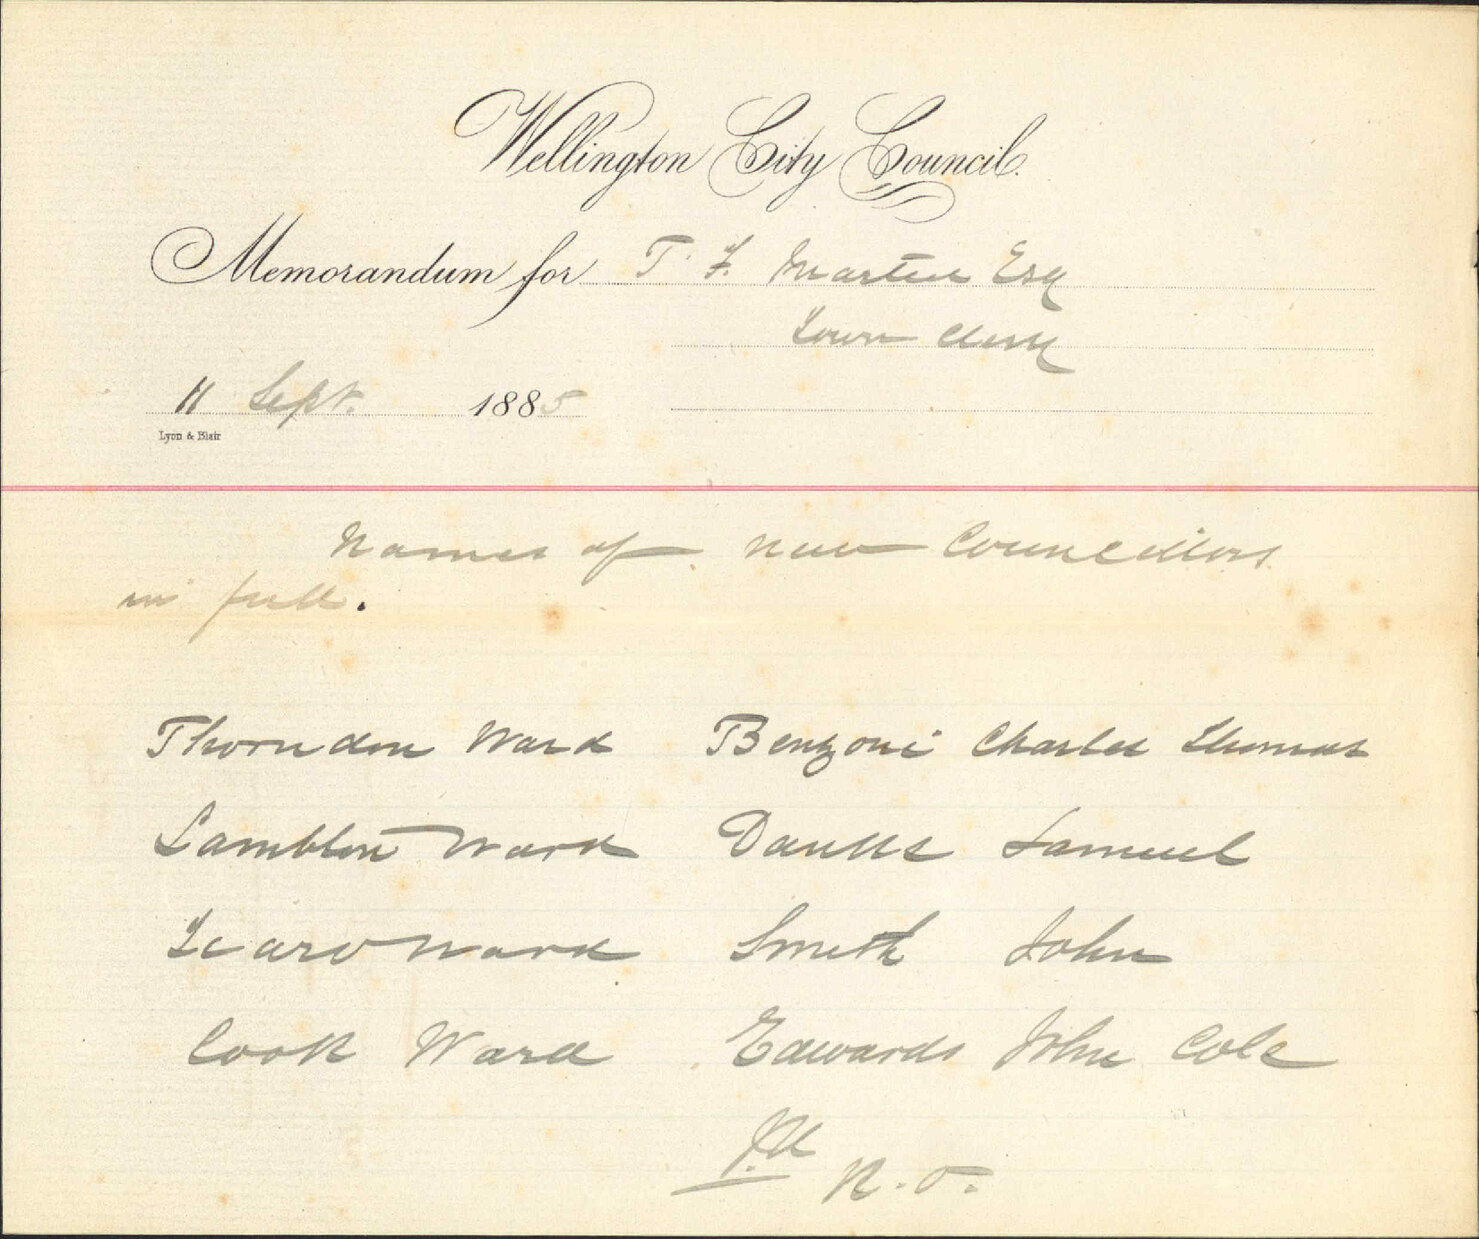 Wellington City Council.
Memorandum for T. F. Martin Esq
Town Clerk
11 Sept. 1885
Lyon & Blair
Names of new Councillors
in full.
Thorndon Ward Benzoni Charles Thomas
Lambton Ward Danks Samuel
Te Aro Ward Smith John
Cook Ward Edwards John Cole
R. O.